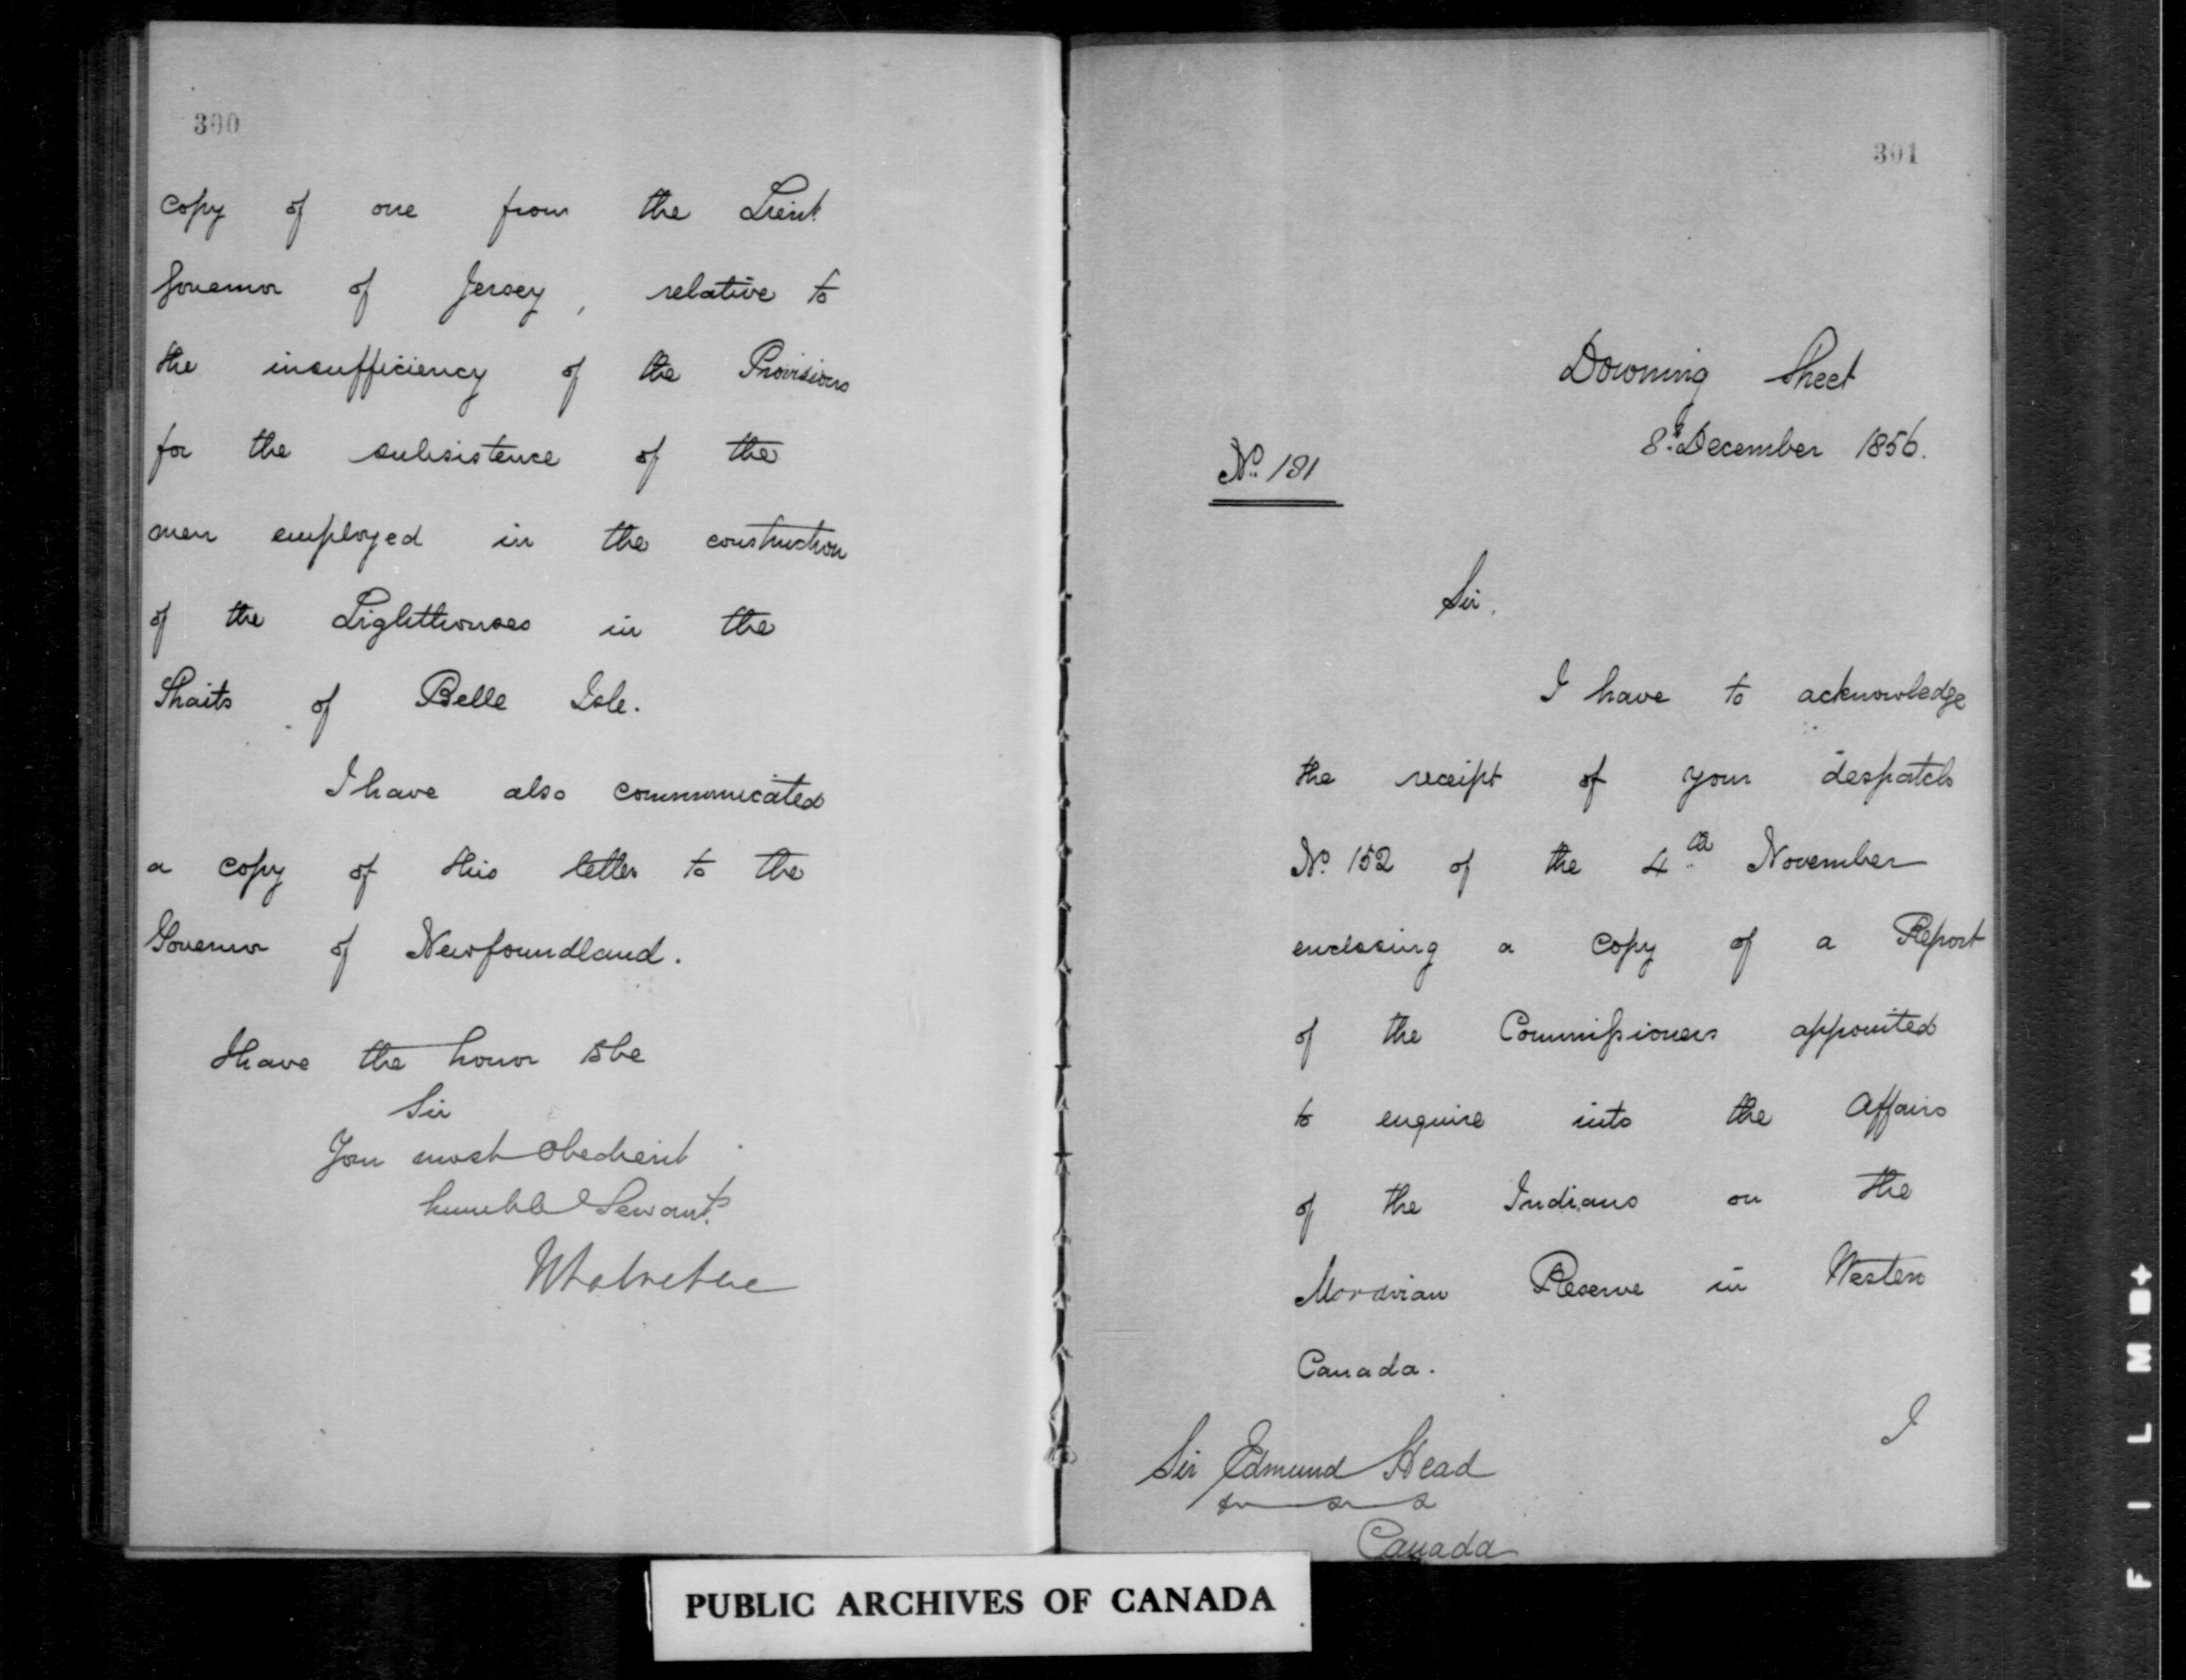 300
copy of one from the Lieut.
Governor of Jersey, relative to
the insufficiency of the Provisions
for the subsistence of the
men employed in the construction
of the Lighthouses in the
Straits of Belle Isle.
I have also communicated
a copy of this letter to the
Governor of Newfoundland.
I have the honor to be
Sir
Your most obedient
humble Servant
301
Downing Street
8 December 1856.
No. 131
Sir,
I have to acknowledge
the receipt of your despatch
No. 152 of the 4th November
enclosing a copy of a Report
of the Commissioners appointed
to enquire into the Affairs
of the Indians on the
Moravian Reserve in Western
Canada.
I
Sir Edmund Head
Canada
PUBLIC ARCHIVES OF CANADA
FILM